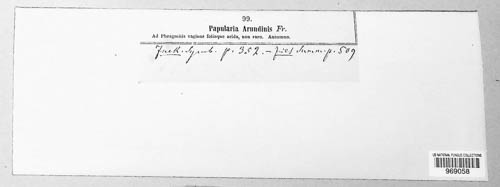 99.
Papularia Arundinis Fr.
Ad Phragmitis vaginas foliaque arida, non raro. Autumno.
Fuck. Symb. p. 352. — p. 509
US NATIONAL FUNGUS COLLECTIONS
969058